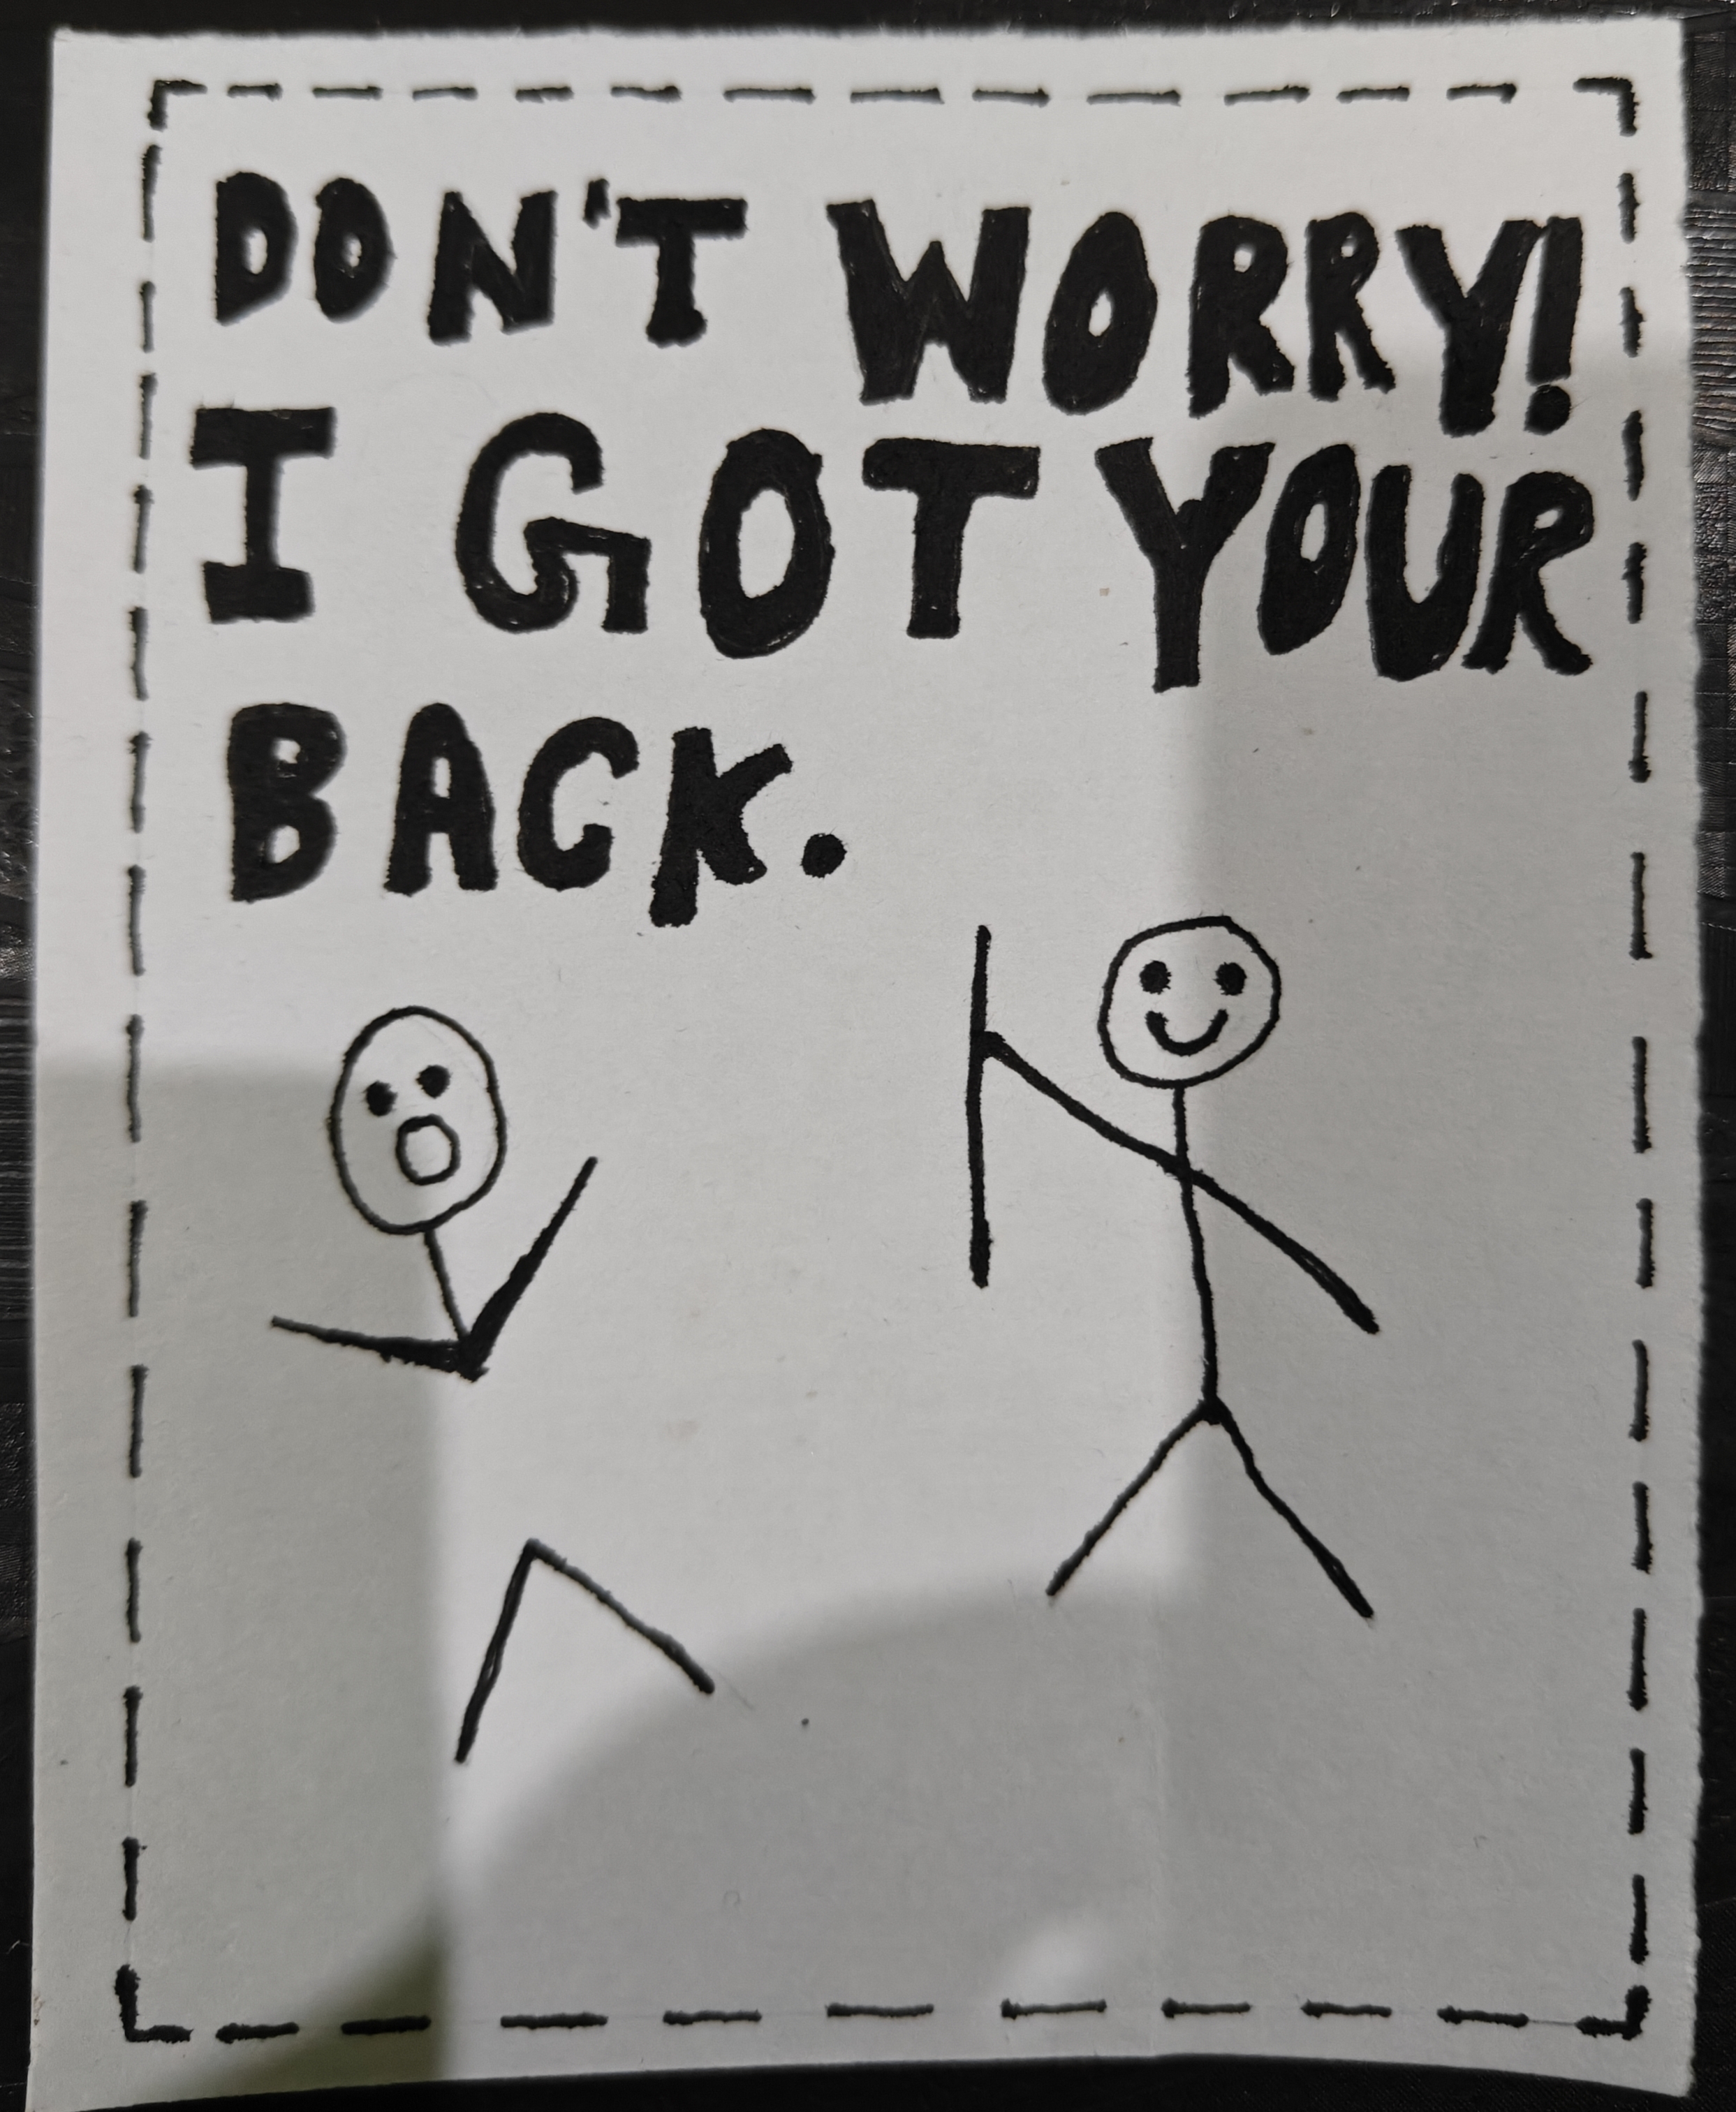 DON'T WORRY!
I GOT YOUR
BACK.